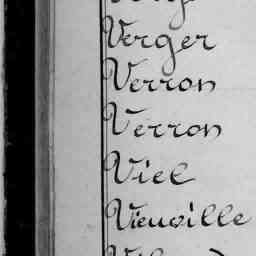 Verger
Verron
Verron
Viel
Vieuville